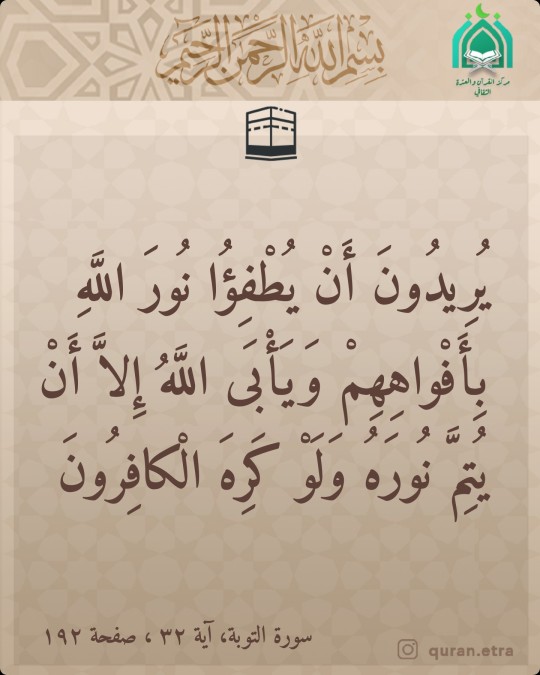 بِسْمِ اللَّهِ الرَّحْمَنِ الرَّحِيمِ
مركز القرآن والعترة
الثقافي
يُرِيدُونَ أَنْ يُطْفِؤُا نُورَ اللَّهِ
بِأَفْواهِهِمْ وَيَأْبَى اللَّهُ إِلاَّ أَنْ
يُتِمَّ نُورَهُ وَلَوْ كَرِهَ الْكافِرُونَ
سورة التوبة، آية ٣٢ ، صفحة ١٩٢
quran.etra